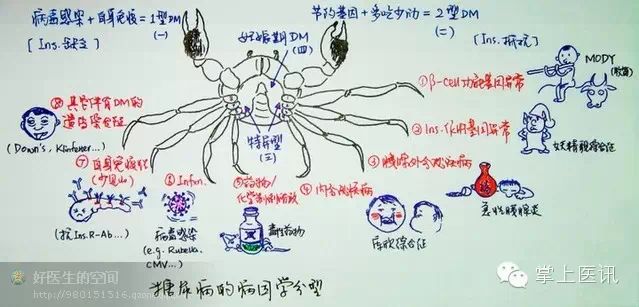 病毒感染+自身免疫=1型DM
(一)
[Ins.缺乏]
节约基因+多吃少动=2型DM
(二)
[Ins.抵抗]
妊娠期DM
(四)
特异型
(三)
①β-cell功能基因异常
MODY
②Ins.作用基因异常
妖精貌综合征
③胰腺外分泌疾病
急性胰腺炎
④内分泌疾病
库欣综合征
⑤药物/
化学制剂所致
毒性药物
⑥Infen.
病毒感染
(e.g. Rubella.
CMV...)
⑦自身免疫性
(少见)
(抗Ins.R-Ab...)
⑧其它伴有DM的
遗传综合征
(Down's, Klinfelter...)
糖尿病的病因学分型
好医生的空间
http://980151516.qzone
掌上医讯